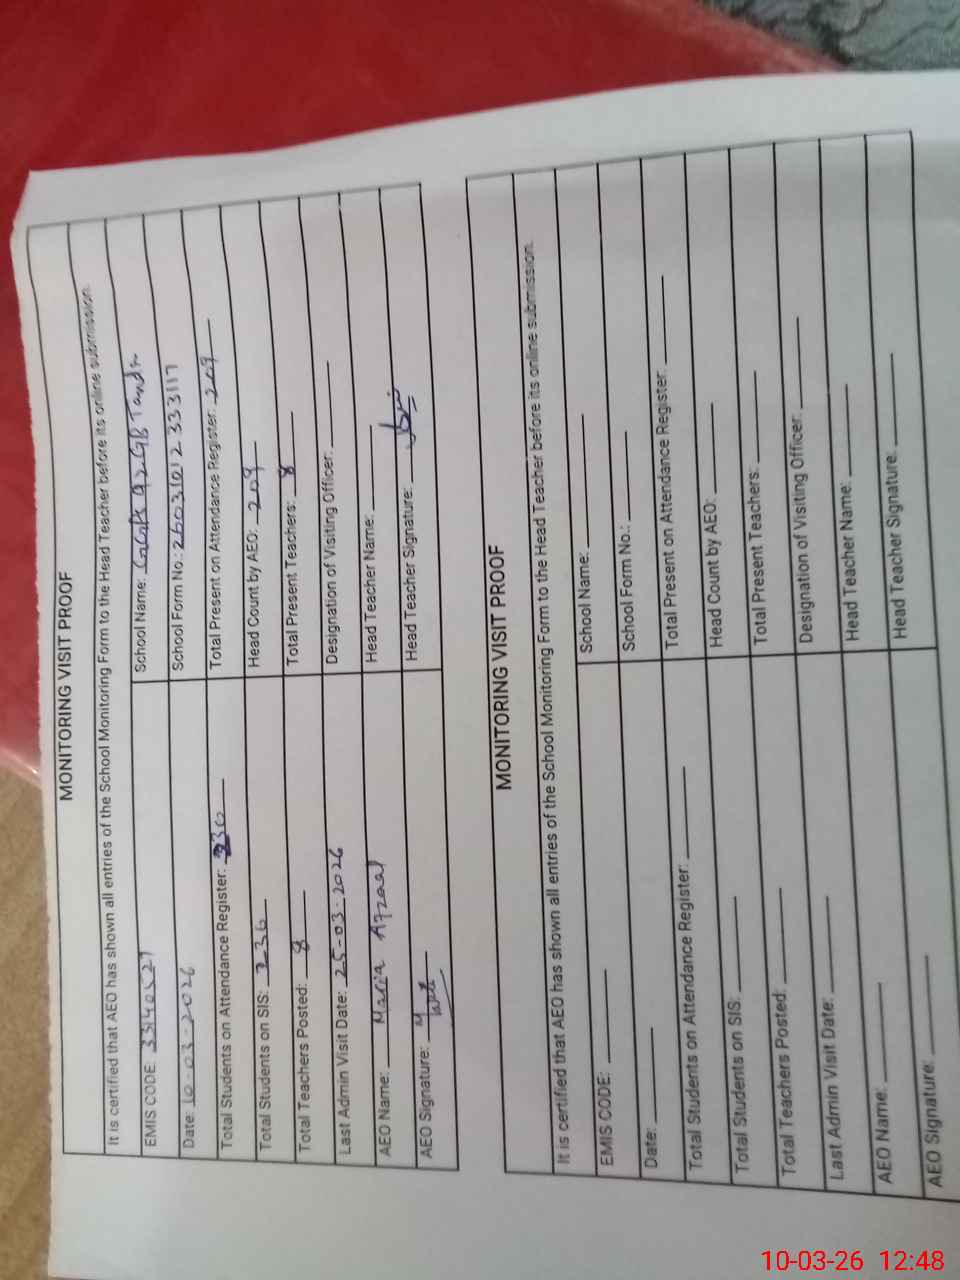 MONITORING VISIT PROOF
It is certified that AEO has shown all entries of the School Monitoring Form to the Head Teacher before its online submission.
EMIS CODE: 33140527 School Name: 92GB
Date: 10-03-2026 School Form No.: 26031012333117
Total Students on Attendance Register: 236 Total Present on Attendance Register: 209
Total Students on SIS: 236 Head Count by AEO: 209
Total Teachers Posted: 8 Total Present Teachers: 8
Last Admin Visit Date: 25-03-2026 Designation of Visiting Officer:
AEO Name: Maria Afzaal Head Teacher Name:
AEO Signature: Head Teacher Signature:
MONITORING VISIT PROOF
It is certified that AEO has shown all entries of the School Monitoring Form to the Head Teacher before its online submission.
EMIS CODE: School Name:
Date: School Form No.:
Total Students on Attendance Register: Total Present on Attendance Register:
Total Students on SIS: Head Count by AEO:
Total Teachers Posted: Total Present Teachers:
Last Admin Visit Date: Designation of Visiting Officer:
AEO Name: Head Teacher Name:
AEO Signature: Head Teacher Signature:
10-03-26 12:48